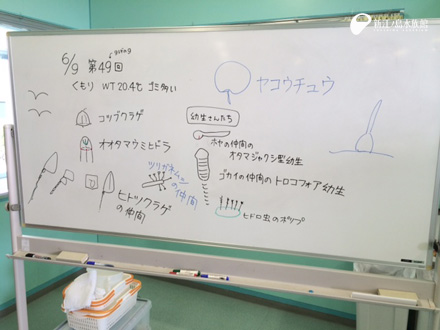 新江ノ島水族館
6/9 第49回
くもり WT 20.4℃ ゴミ多い
ヤコウチュウ
コツブクラゲ
幼生さんたち
オオタマウミヒドラ
ホヤの仲間の
オタマジャクシ型幼生
ツリガネムシ
の仲間
ゴカイの仲間のトロコフォア幼生
ヒトツクラゲ
の仲間
ヒドロ虫のポリプ